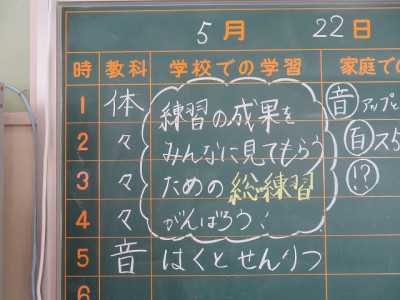 5月 22日
時 教科 学校での学習 家庭での
1 体 練習の成果を 音 アップと
2 々 みんなに見てもらう 自 ス5
3 々 ための総練習 !?
4 々 がんばろう!
5 音 はくとせんりつ
6